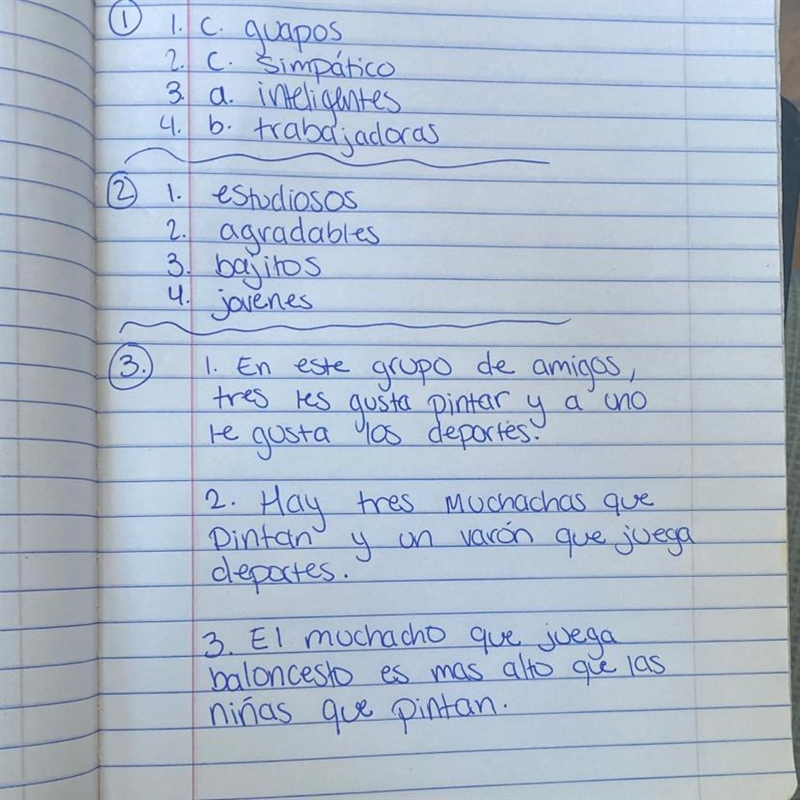 ① 1. c. guapos
2. c. simpático
3. a. inteligentes
4. b. trabajadoras
② 1. estudiosos
2. agradables
3. bajitos
4. jovenes
③. 1. En este grupo de amigos,
tres les gusta pintar y a uno
le gusta los deportes.
2. Hay tres muchachas que
pintan y un varón que juega
deportes.
3. El muchacho que juega
baloncesto es mas alto que las
niñas que pintan.